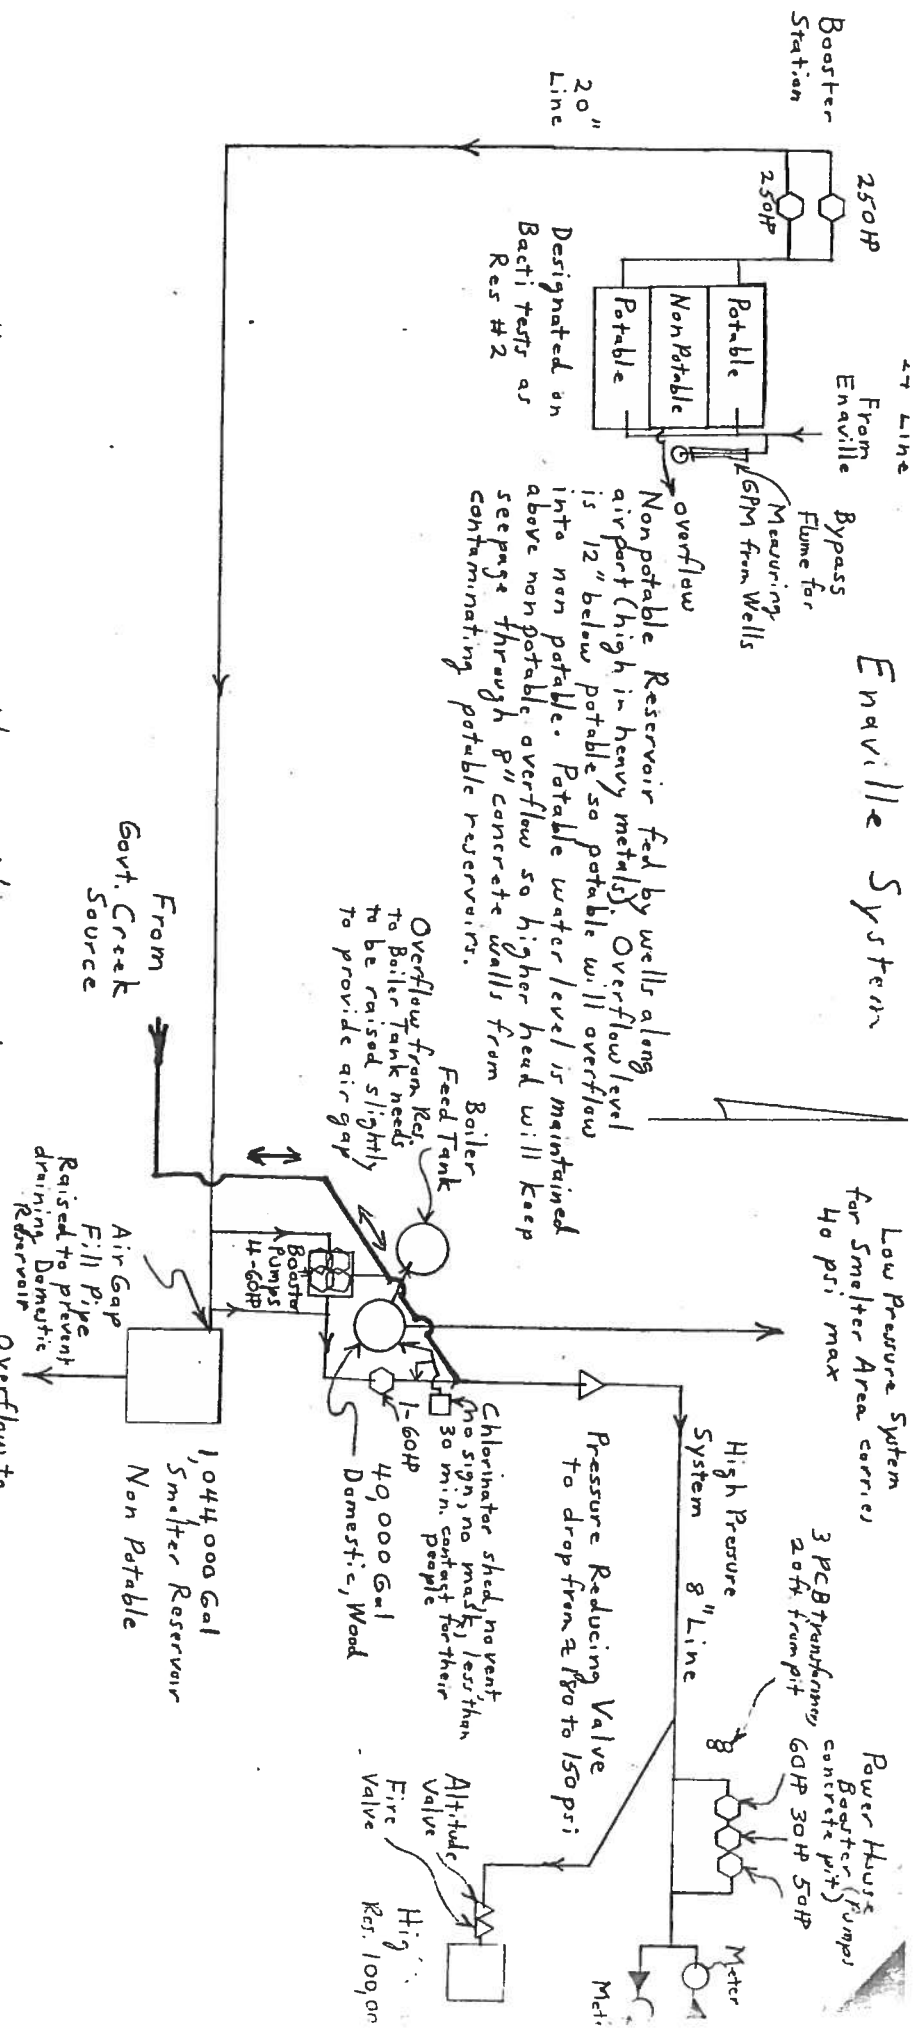 Enaville System
Booster
Station
250HP
250HP
20"
Line
Line
From
Enaville
Bypass
Flume for
Measuring
GPM from Wells
Potable
NonPotable
Potable
overflow
Designated on
Bacti tests as
Res #2
Nonpotable Reservoir fed by wells along
airport (high in heavy metals). Overflow level
is 12" below potable so potable will overflow
into non potable. Potable water level is maintained
above nonpotable overflow so higher head will keep
seepage through 8" concrete walls from
contaminating potable reservoirs.
Low Pressure System
for Smelter Area carries
40 psi max
Boiler
Feed Tank
Overflow from Res.
to Boiler Tank needs
to be raised slightly
to provide air gap
From
Govt. Creek
Source
Booster
Pumps
4-60HP
Air Gap
Fill Pipe
Raised to prevent
draining Domestic
Reservoir
Overflow to
1,044,000 Gal
Smelter Reservoir
Non Potable
1-60HP
40,000 Gal
Domestic, Wood
Chlorinator shed, no vent,
no sign, no mask, less than
30 min. contact for their
people
Pressure Reducing Valve
to drop from ≈ 180 to 150 psi
High Pressure
System 8" Line
3 PCB transformers
20ft from pit
Power House
Booster (Pumps
concrete pit)
60HP 30HP 50HP
Meter
Altitude
Valve
Fire
Valve
Res. 100,00